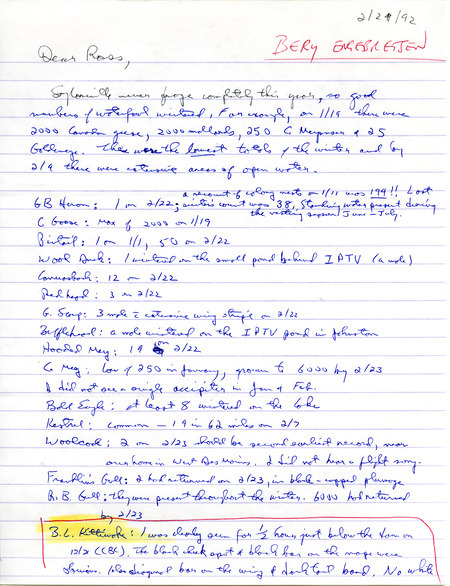 2/28/92
BERY ENGEBRETSEN
Dear Ross,
Saylorville never froze completely this year, so good
numbers of waterfowl wintered. For example, on 1/19 there were
2000 Canada geese, 2000 mallards, 250 C Mergansers & 25
Goldeneye. These were the lowest totals of the winter and by
2/9 there were extensive areas of open water.
a recount of colony nests on 1/11 was 199!! Last
GB Heron: 1 on 2/22; winter's count was 38. Standing water present during
the nesting season June-July.
C Goose: Max of 2000 on 1/19
Pintail: 1 on 1/1, 50 on 2/22
Wood Duck: 1 wintered on the small pond behind IPTV (a male)
Canvasback: 12 on 2/22
Redhead: 3 on 2/22
G. Scaup: 3 males c extensive wing stripe on 2/22
Bufflehead: a male wintered on the IPTV pond in Johnston
Hooded Merg: 19 on 2/22
C Merg: Low of 250 in January, grown to 6000 by 2/23
I did not see a single accipiter in Jan & Feb.
Bald Eagle: at least 8 wintered on the lake
Kestrel: common - 19 in 62 miles on 2/7
Woodcock: 2 on 2/23 should be second earliest record, near
our home in West Des Moines. I did not hear a flight song.
Franklin's Gull: 2 had returned on 2/23, in black-capped plumage
R.B. Gull: they were present throughout the winter. 6000 had returned
by 2/23
B.L. Kittiwake: 1 was clearly seen for 1/2 hours just below the dam on
(CBC). The black cheek spot & black bar on the nape were
obvious. Also diagonal bar on the wing & dark tail band. No white